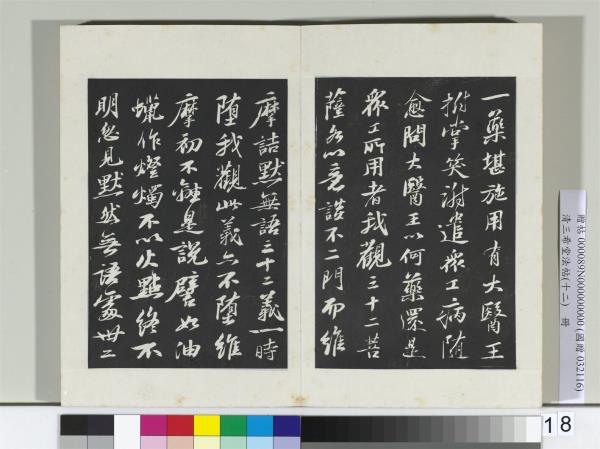 一藥堪施用有大醫王
拊掌笑謝遣衆工病隨
愈問大醫王以何藥還是
衆工所用者我觀三十二菩
薩各以意談不二門而維
摩詰默無語三十二義一時
墮我觀此義亦不墮維
摩初不離是說譬如油
蠟作燈燭不以火點終不
明忽見默然無語處卅二
贈帖000089N000000000 (國贈 032116)
清三希堂法帖(十二) 冊
18